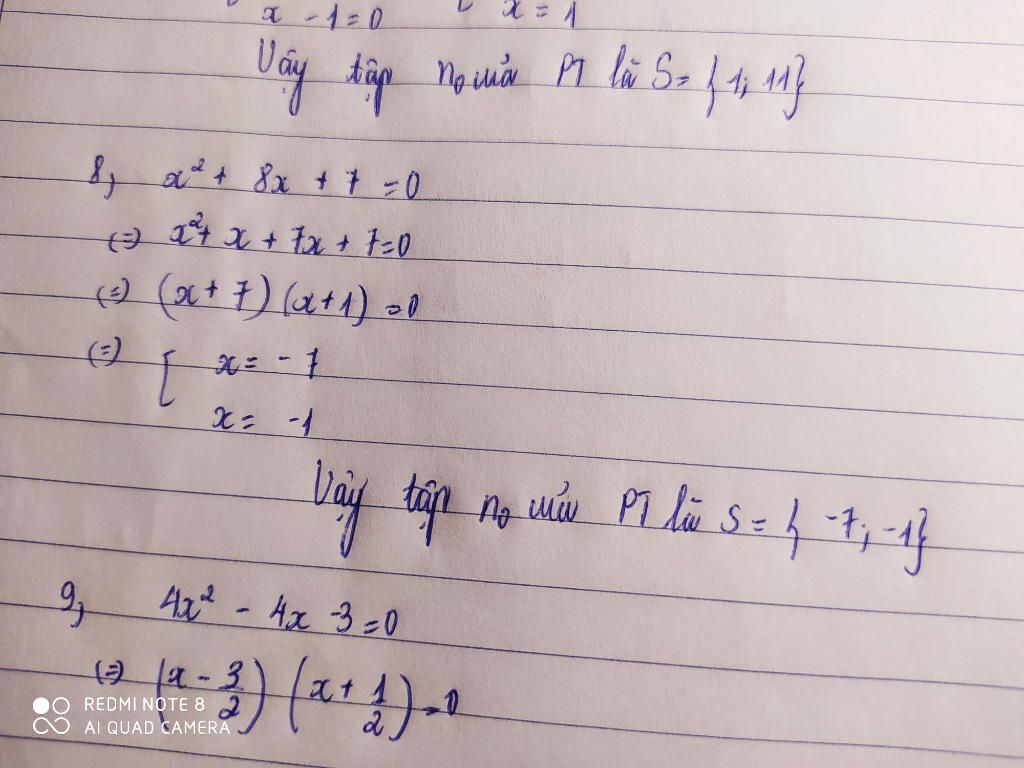 x - 1 = 0 [ x = 1
Vậy tập no của PT là S = { 1; 11}
8, x² + 8x + 7 = 0
(=) x² + x + 7x + 7 = 0
(=) (x + 7) (x + 1) = 0
(=) [ x = - 7
x = -1
Vậy tập no của PT là S = { -7; -1}
9, 4x² - 4x - 3 = 0
(=) (x - 3/2) (x + 1/2) = 0
REDMI NOTE 8
AI QUAD CAMERA